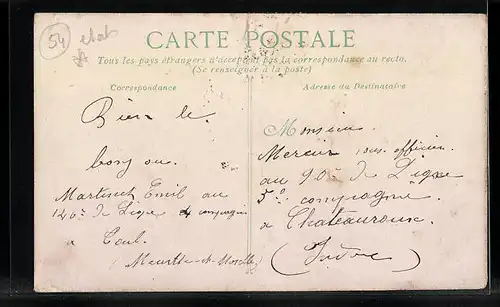 54
CARTE POSTALE
Tous les pays étrangers n'acceptent pas la correspondance au recto.
(Se renseigner à la poste)
Correspondance
Bien le
bonjour
Emil au
140e de Ligne 4 compagnie
à Toul.
(Meurthe-et-Moselle)
Adresse du Destinataire
Monsieur
Mercier sous officier
au 90e de Ligne
5e compagnie
à Chateauroux
(Indre)